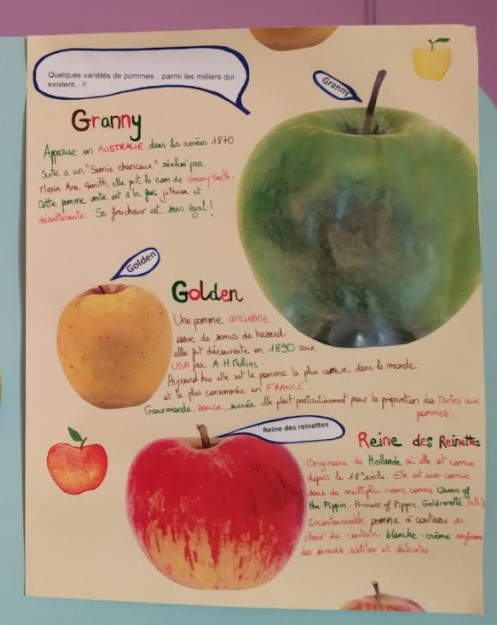 Quelques variétés de pommes... parmi les milliers qui
existent...!!
Granny
Granny
Apparue en AUSTRALIE dans les années 1870
suite à un "Semis chanceux" réalisé par
Maria Ann Smith, elle prit le nom de Granny Smith.
Cette pomme verte est à la fois juteuse et
désaltérante. Sa fraicheur est sans égal!
Golden
Golden
Une pomme ancienne
issue de semis de hasard
elle fut découverte en 1890 aux
USA par A.H Mullins.
Aujourd'hui elle est la pomme la plus connue dans le monde
et la plus consommée en FRANCE.
Gourmande, douce, sucrée elle plait particulièrement pour la préparation des tartes aux
pommes.
Reine des reinettes
Reine des Reinettes
Originaire de Hollande où elle est connue
depuis le 18e siècle. Elle est aussi connue
sous de multiples noms comme Queen of
the Pippin, Princess of Pippin, Goldrenette
Incontournable pomme à couteau sa
chair de couleur blanche-crème
des saveurs subtiles et délicates.